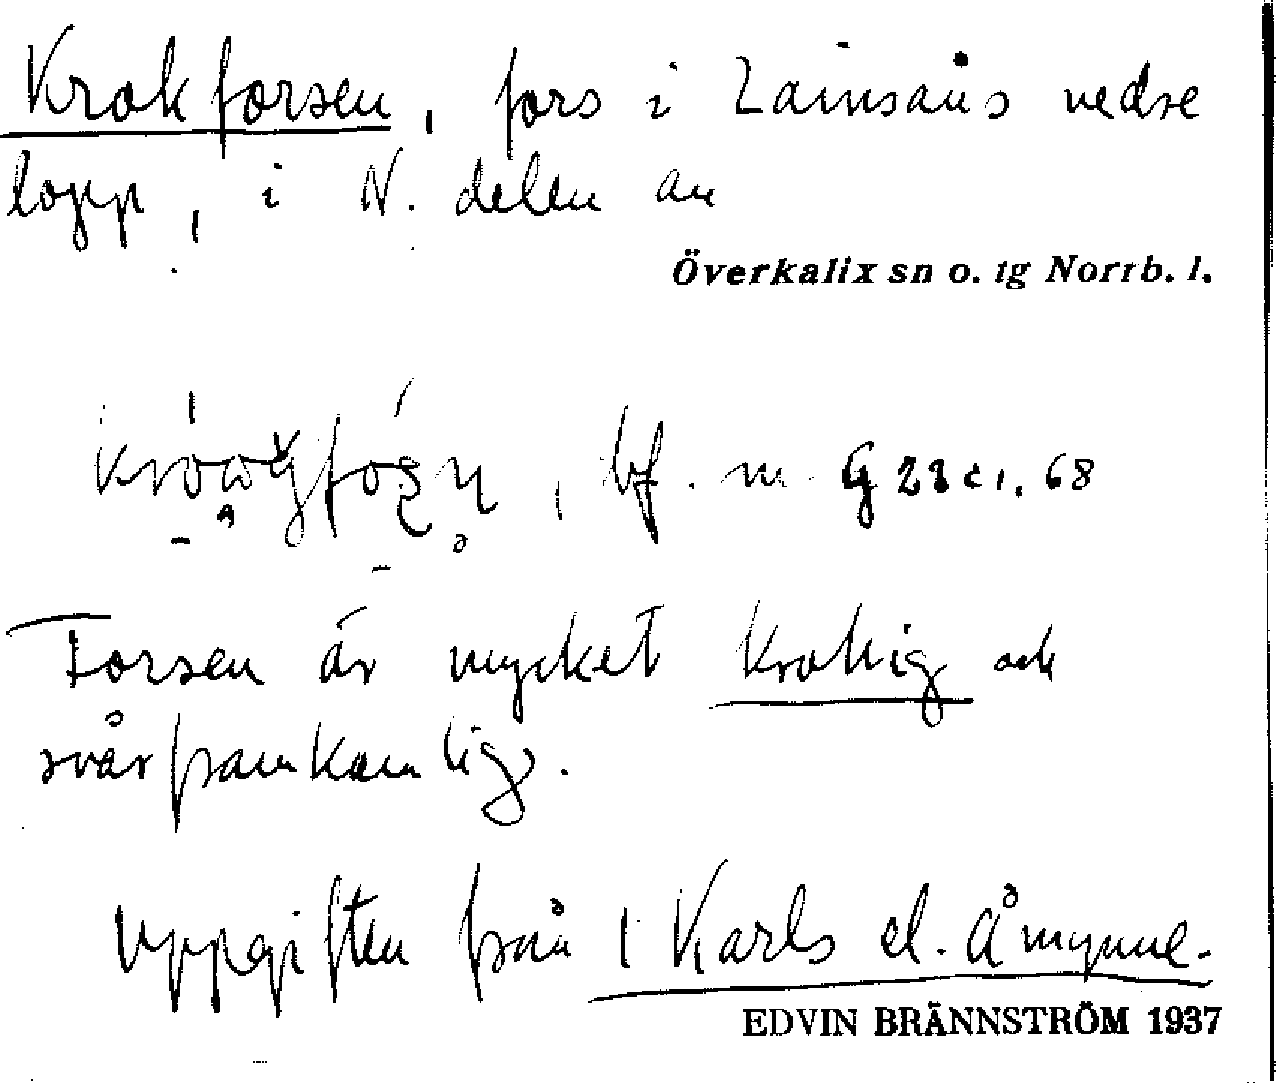 Krokforsen, fors i Lainsåns nedre
lopp, i N. delen av
Överkalix sn o. tg Norrb. l.
, bf. m. G 23 c1. 68
Forsen är mycket krokig och
svårframkomlig.
Uppgiften från 1 Karls el. Åmynne.
EDVIN BRÄNNSTRÖM 1937